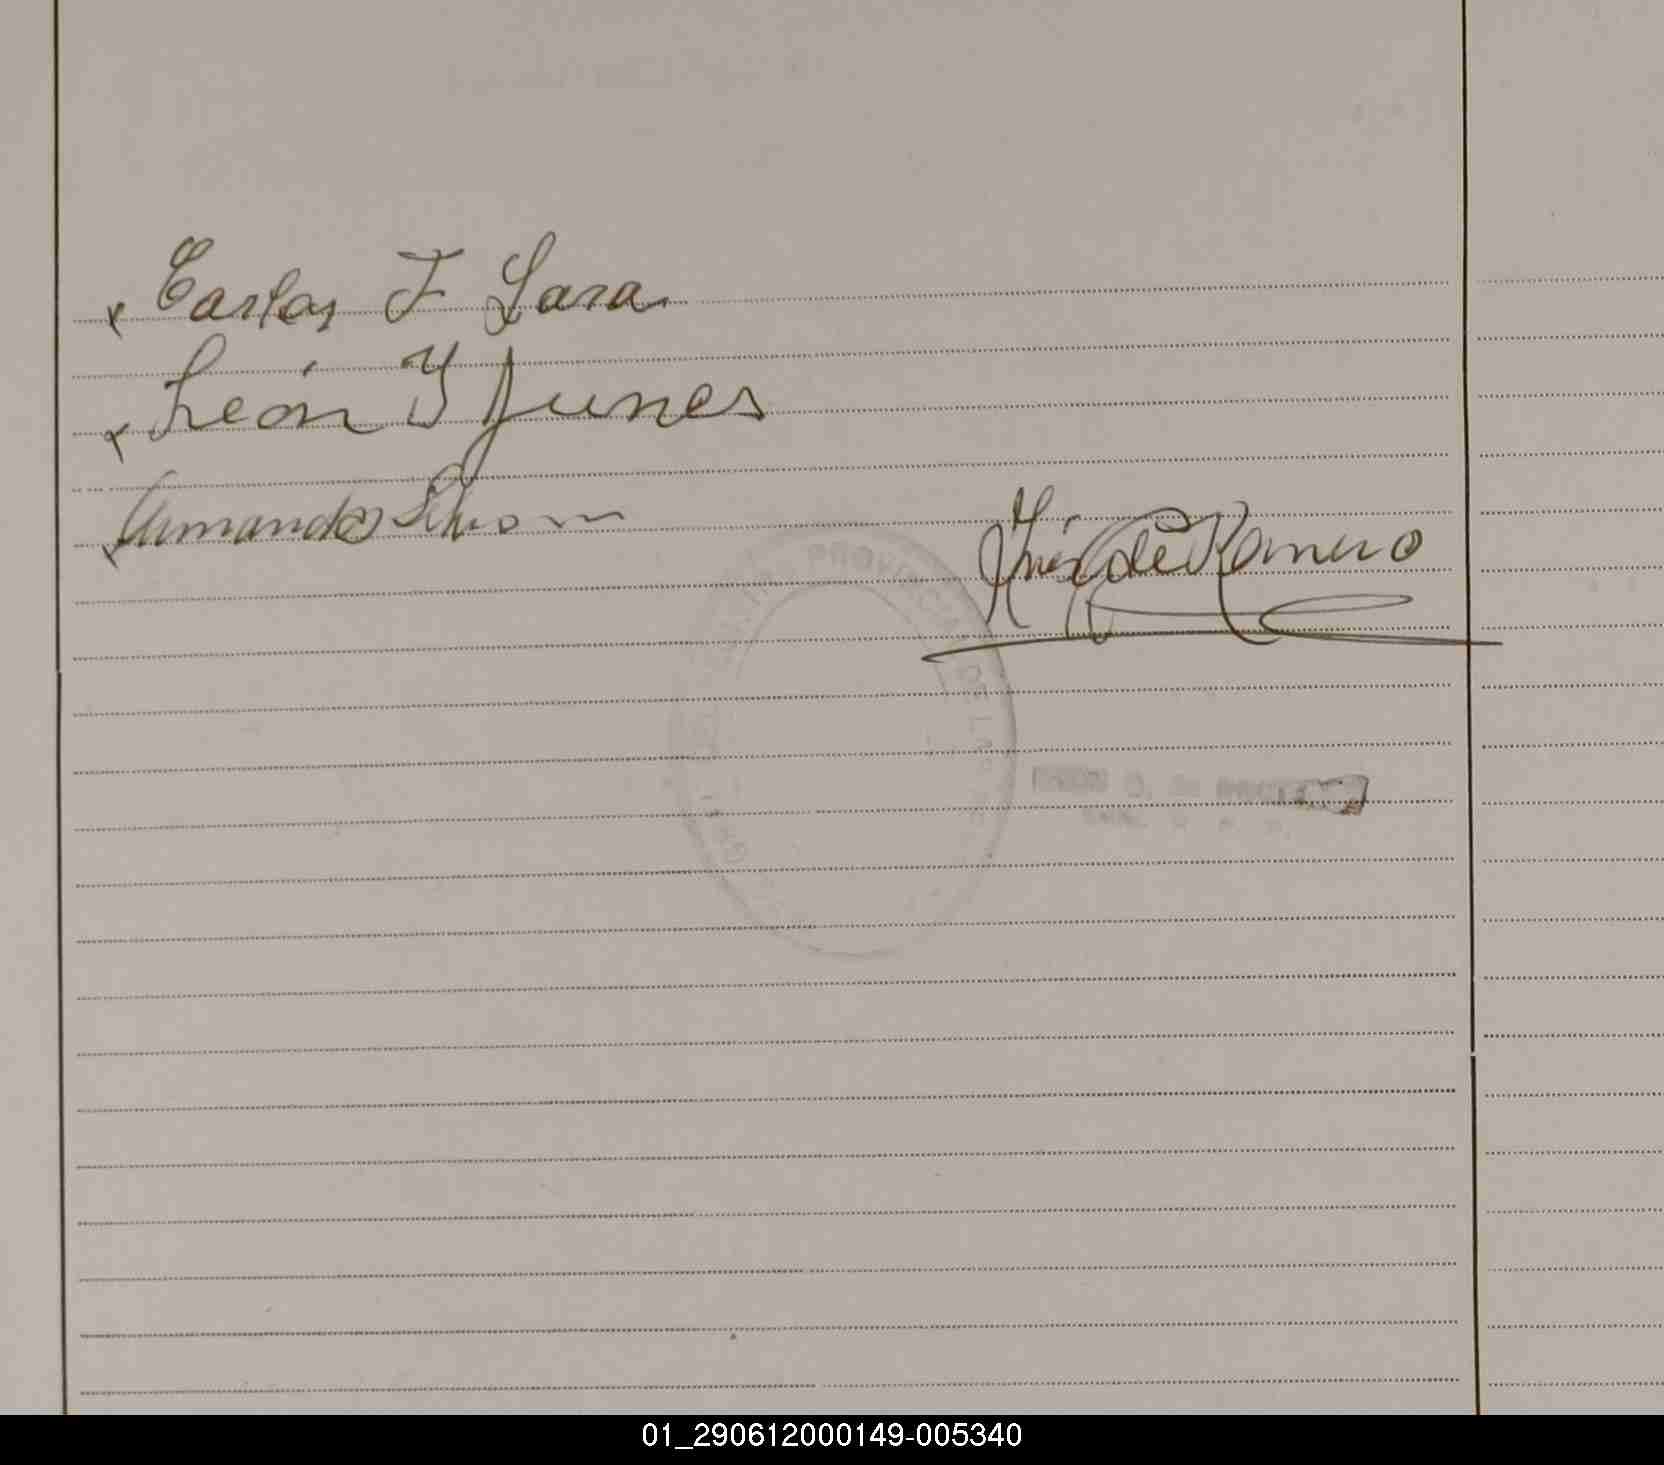 x Carlos F Lara
x León Y Junes
x Armando
Inés G de Romero
PROVINCIA DE LA
01_290612000149-005340